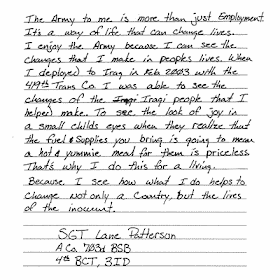 The Army to me is more than just Employment.
It's a way of life that can change lives.
I enjoy the Army because I can see the
changes that I make in peoples lives. When
I deployed to Iraq in Feb 2003 with the
419th Trans Co. I was able to see the
changes of the Iraqi Iraqi people that I
helped make. To see the look of joy in
a small childs eyes when they realize that
the fuel & Supplies you bring is going to mean
a hot & yummie meal for them is priceless.
That's why I do this for a living.
Because I see how what I do helps to
change not only a Country, but the lives
of the inocent.
SGT Lane Patterson
A Co. 703d BSB
4th BCT, 3ID